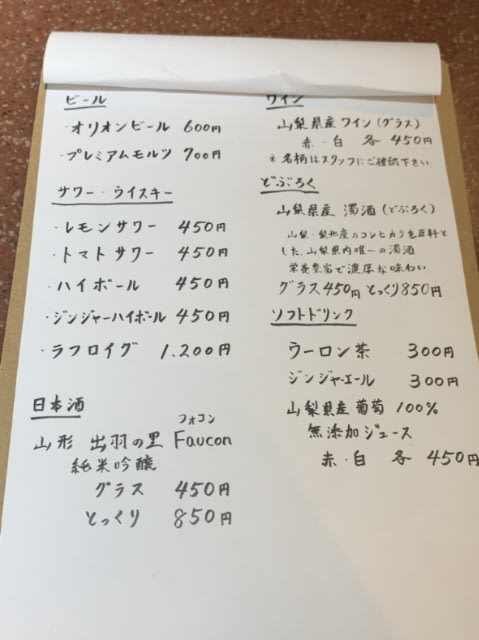 ビール
・オリオンビール 600円
・プレミアムモルツ 700円
サワー・ウイスキー
・レモンサワー 450円
・トマトサワー 450円
・ハイボール 450円
・ジンジャーハイボール 450円
・ラフロイグ 1.200円
日本酒
フォコン
山形 出羽の里 Faucon
純米吟醸
グラス 450円
とっくり 850円
ワイン
山梨県産ワイン(グラス)
赤・白 各 450円
* 名柄はスタッフにご確認下さい
どぶろく
山梨県産 濁酒(どぶろく)
山梨・梨北産のコシヒカリを原料と
した、山梨県内唯一の濁酒
栄養豊富で濃厚な味わい
グラス450円 とっくり850円
ソフトドリンク
ウーロン茶 300円
ジンジャーエール 300円
山梨県産葡萄 100%
無添加ジュース
赤・白 各 450円